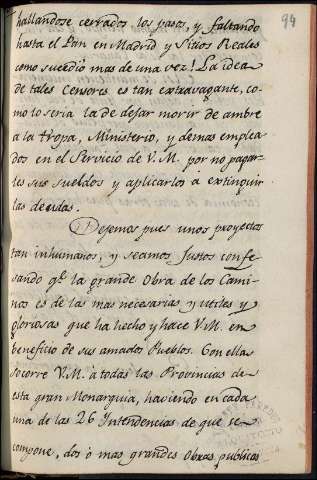 94
hallandose cerrados los pasos, y faltando
hasta el Pan en Madrid y Sitios Reales
como sucedió mas de una vez! La idea
de tales Censores es tan extravagante, co-
mo lo seria la de dejar morir de ambre
a la tropa, Ministerio, y demas emplea-
dos en el Servicio de V.M. por no pagar-
les sus sueldos y aplicarlos á extinguir
las deudas.
Dejemos pues unos proyectos
tan inhumanos, y seamos justos confe-
sando qe. la grande obra de los Cami-
nos es de las mas necesarias y utiles y
gloriosas que ha hecho y hace V.M. en
beneficio de sus amados Pueblos. Con ellas
socorre V.M. à todas las Provincias de
esta gran Monarquia, haciendo en cada
una de las 26 Intendencias de que se
compone, dos ò mas grandes obras publicas